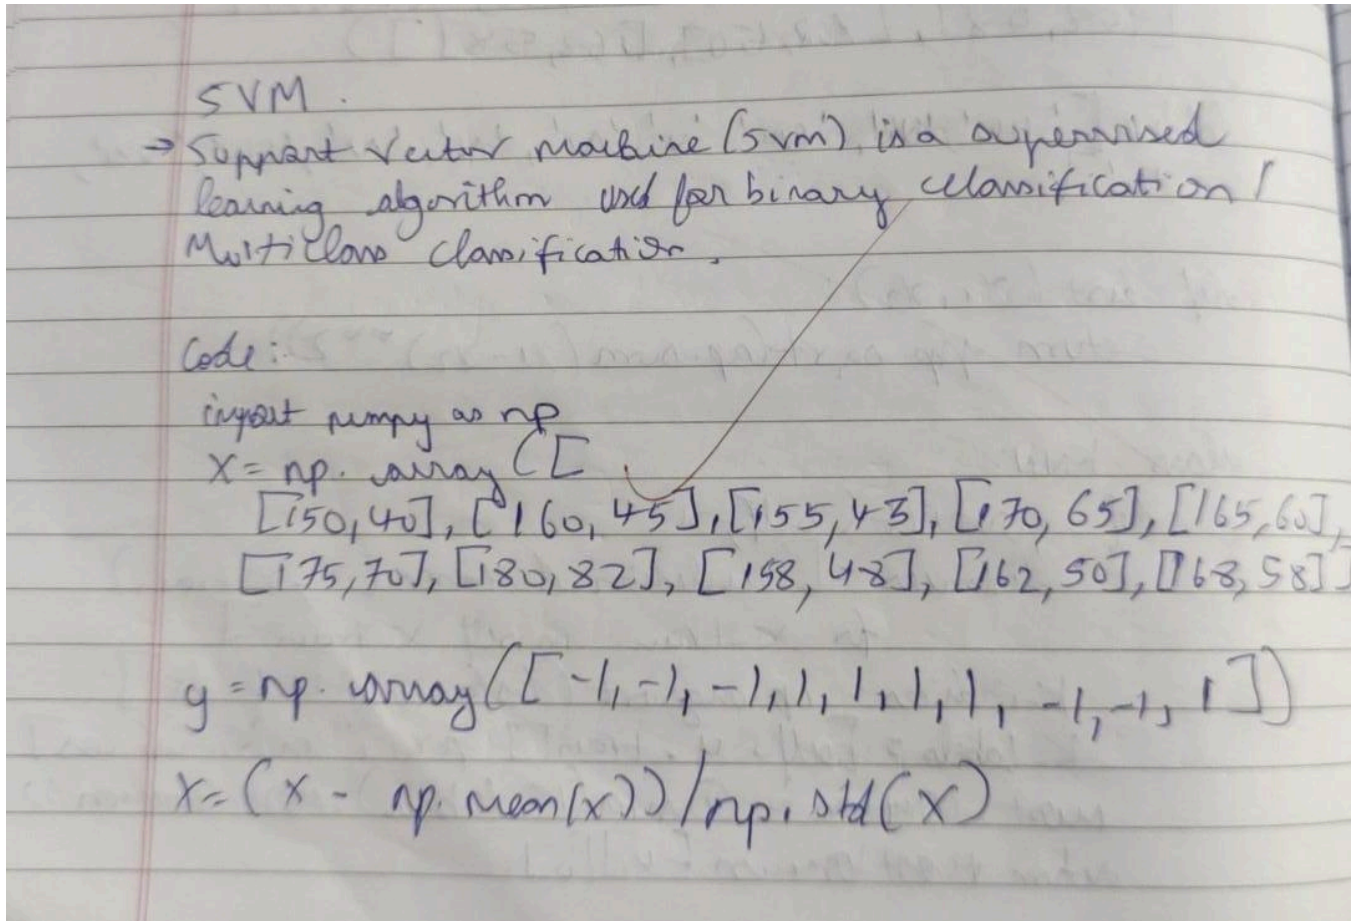 SVM.
→ Support Vector machine (svm) is a supervised
learning algorithm used for binary classification /
Multiclass classification.
Code:
import numpy as np
X = np. array ([
[150,40], [160,45], [155,43], [170,65], [165,60],
[175,70], [180,82], [158,48], [162,50], [168,58]]
y = np. array([-1,-1,-1,1,1,1,1,-1,-1,1])
X = (X - np. mean(x)) / np. std(X)